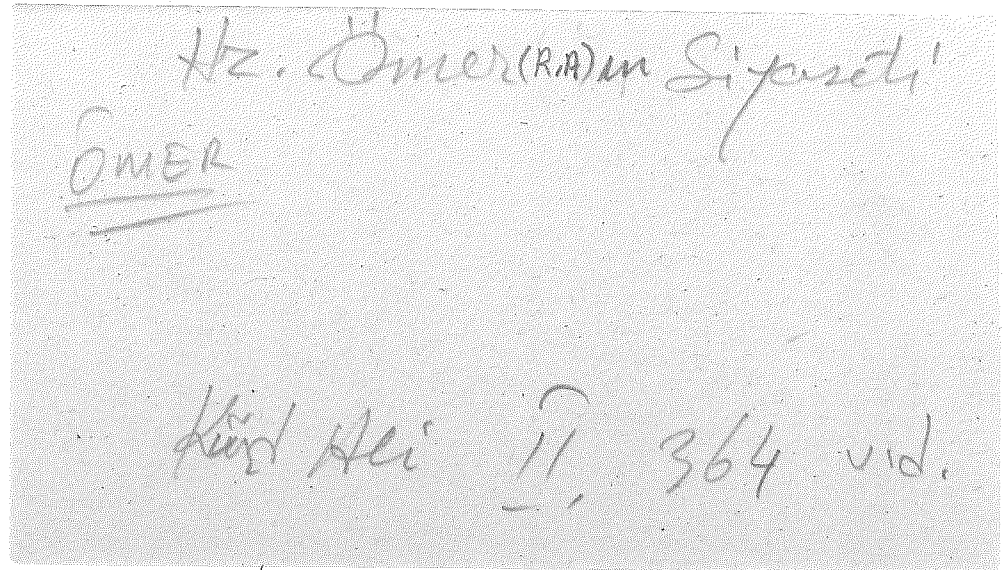 Hz. Ömer (R.A) ın Siyaseti
ÖMER
Kürd Ali II, 364 vd.